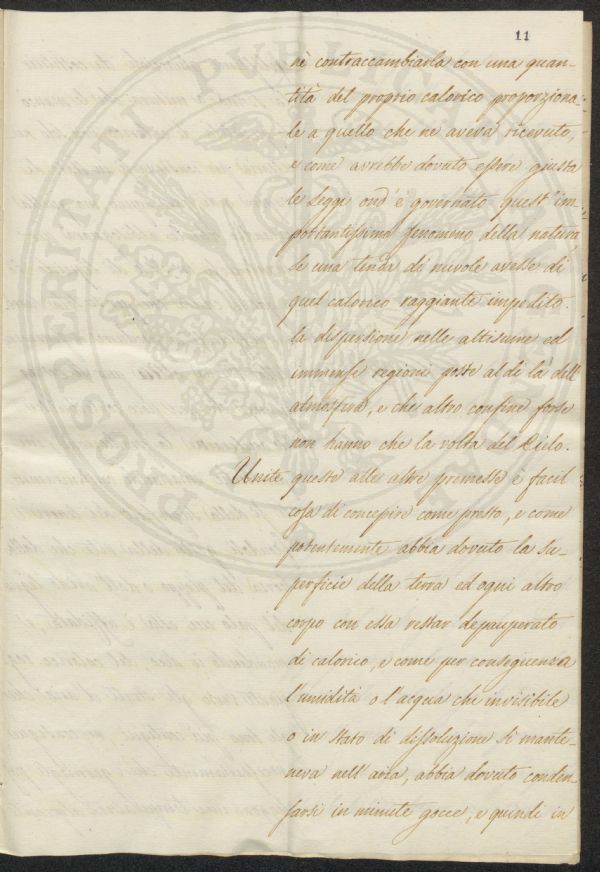 11
nè contraccambiarla con una quan-
tità del proprio calorico proporziona-
le a quello che ne aveva ricevuto,
e come avrebbe dovuto essere giusta
le leggi ond' è governato quest' im-
portantissimo fenomeno della natura
se una tenda di nuvole avesse di
quel calorico raggiante impedito
la dispersione nelle altissime ed
immense regioni poste al di là dell'
atmosfera, e che altro confine forse
non hanno che la volta del Cielo.
Unite queste alle altre premesse è facil
cosa di concepire come presto, e come
potentemente abbia dovuto la su-
perficie della terra ed ogni altro
corpo con essa restar depauperato
di calorico, e come per conseguenza
l'umidità o l'acqua che invisibile
o in stato di dissoluzione si mante-
neva nell' aria, abbia dovuto conden-
sarsi in minute gocce, e quindi in
PROSPERITATI PUBLICAE